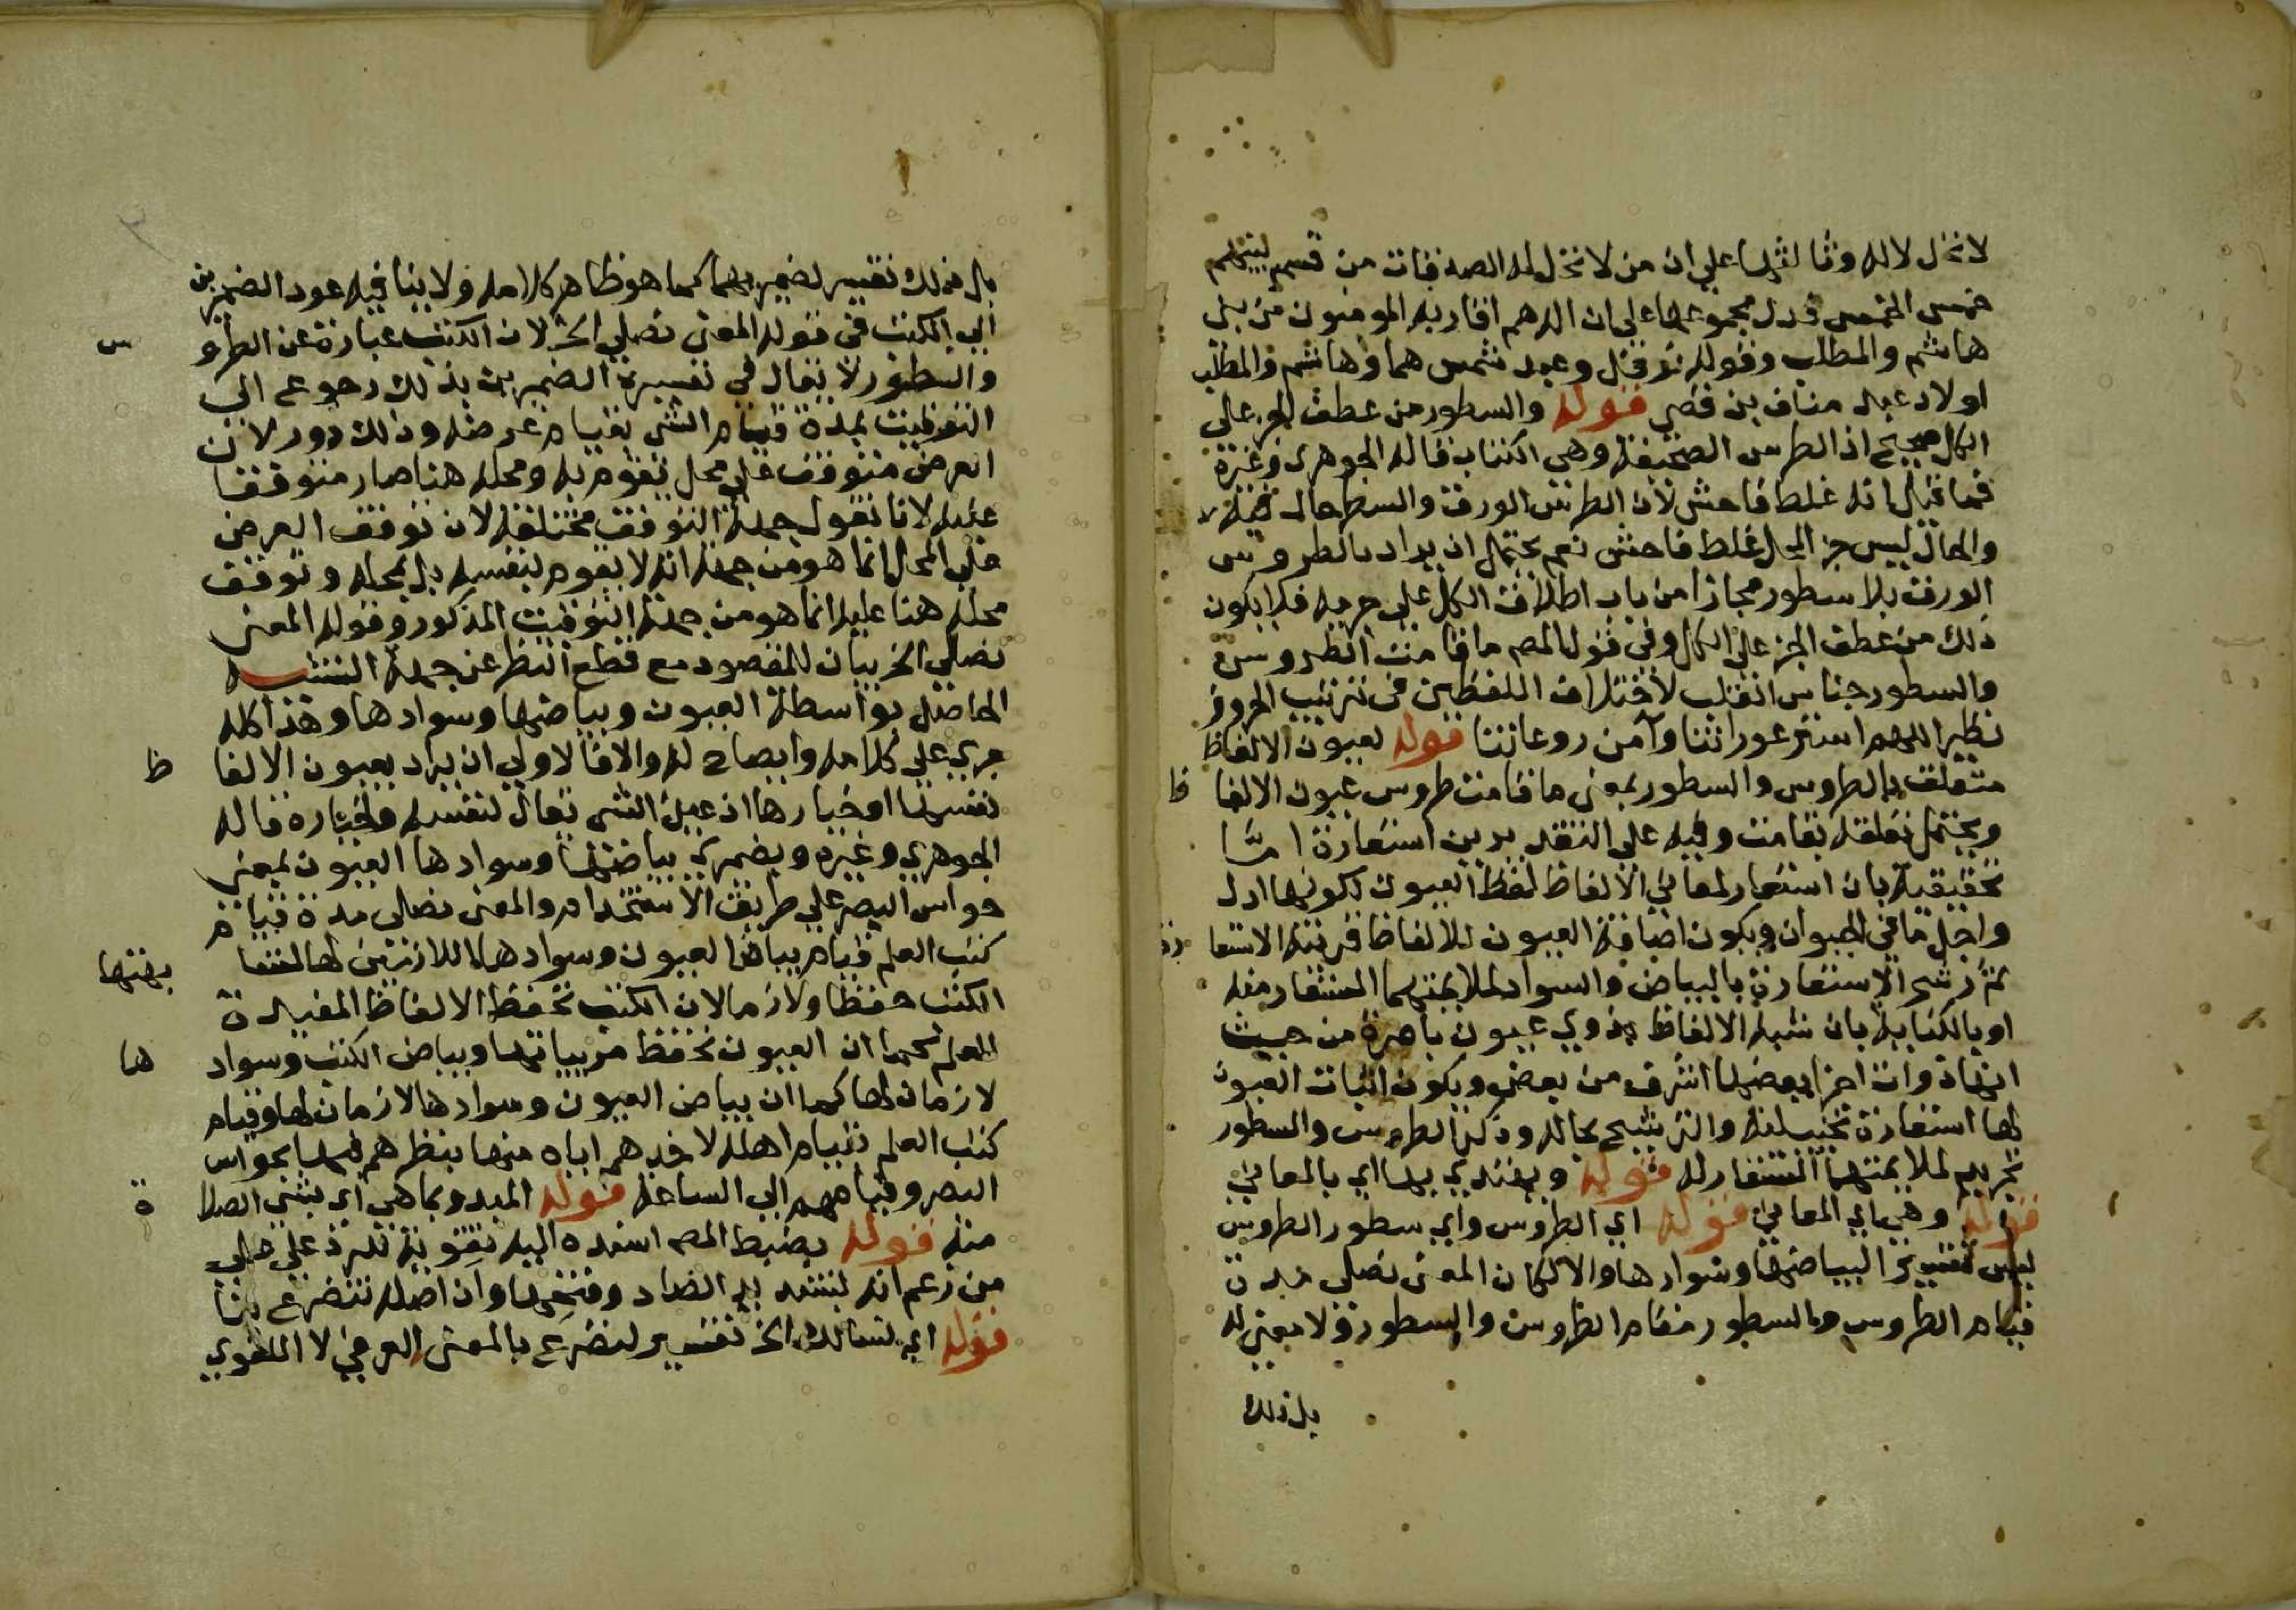 لا تحل لاله وثالثها على ان من لا تحل له الصدقات من قسم لهم
خمس الخمس فدل مجموعها على ان اله هم اقاربه المومنون من بني
هاشم والمطلب وقوله نوفل وعبد شمس هما وهاشم والمطلب
اولاد عبد مناف بن قصي قوله والسطور من عطف الجزء على
الكل صحيح اذ الطرس الصحيفة وهي الكتاب قاله الجوهري وغيره
فما قيل انه غلط فاحش لان الطرس الورق والسطر حال فيه
والحال ليس جز المحل غلط فاحش نعم يحتمل ان يراد بالطروس
الورق بلا سطور مجازا من باب اطلاق الكل على جزيه فلا يكون
ذلك من عطف الجز على الكل وفي قول المص ما قامت الطروس
والسطور جناس القلب لاختلاف اللفظين في ترتيب الحروف
نظير اللهم استر عوراتنا وآمن روعاتنا قوله لعيون الالفاظ
متعلق بالطروس والسطور بمعنى ما قامت طروس عيون الالفاظ
ويحتمل تعلقه بقامت وفيه على التقديرين استعارة اما
تحقيقية بان استعار لمعاني الالفاظ لفظ العيون لكونها ادل
واجل ما في الحيوان ويكون اضافة العيون للالفاظ قرينة الاستعارة
ثم رشح الاستعارة بالبياض والسواد لملايمتهما المستعار منه
او بالكناية بان شبه الالفاظ بذوي عيون باصرة من حيث
انها ذوات اجزا بعضها اشرف من بعض ويكون اثبات العيون
لها استعارة تخييلية والترشيح بحاله وذكر الطروس والسطور
تجريد لملايمتها المستعار له قوله ويهتدي بها اي بالمعاني
قوله وهي اي المعاني قوله اي الطروس واي سطور الطروس
ليس تفسيرا لبياضها وسوادها والا لكان المعنى نصلي مدة
قيام الطروس والسطور مقام الطروس والسطور ولا معنى له
بل ذلك
بل ذلك تفسير لضميريهما كما هو ظاهر كلامه ولا ينافيه عود الضميرين
الى الكتب في قوله المعنى نصلي الخ لان الكتب عبارة عن الطروس
والسطور لا يقال في تفسيره الضميرين بذلك رجوع الى
التوقيت بمدة قيام الشي بقيام عرضه وذلك دور لان
العرض متوقف على محل يقوم به ومحله هنا صار متوقفا
عليه لانا نقول جهة التوقف مختلفة لان توقف العرض
على المحل انما هو من جهة انه لا يقوم بنفسه بل بمحله وتوقف
محله هنا عليه انما هو من جهة التوقيت المذكور وقوله المعنى
نصلي الخ بيان للمقصود مع قطع النظر عن جهة التشبيه
الحاصل بواسطة العيون وبياضها وسوادها وهذا كله
جري على كلامه وايضاح له والا فالاولى ان يراد بعيون الالفاظ
نفسها او خيارها اذ عين الشي تقال لنفسه ولخياره قاله
الجوهري وغيره وبضميري بياضها وسوادها العيون بمعنى
حواس البصر على طريق الاستخدام والمعنى نصلي مدة قيام
كتب العلم قيام بياض العيون وسوادها اللازمين لها لمشابهتها
الكتب حفظا ولازما لان الكتب تحفظ الالفاظ المفيدة
للعلم كما ان العيون تحفظ مرييياتها وبياض الكتب وسوادها
لازمان لها كما ان بياض العيون وسوادها لازمان لها وقيام
كتب العلم بقيام اهله لاخذهم اياه منها بنظرهم فيها بحواس
البصر وقيامهم الى الساعة قوله المبدو بما هي اي بشي الصلاة
منه قوله بضبط المص اسنده اليه تقوية للرد على
من زعم انه بتشديد الضاد وفتحها وان اصله نتضرع بتا
قوله اي نسالك الخ تفسير لنضرع بالمعنى العرفي لا اللغوي